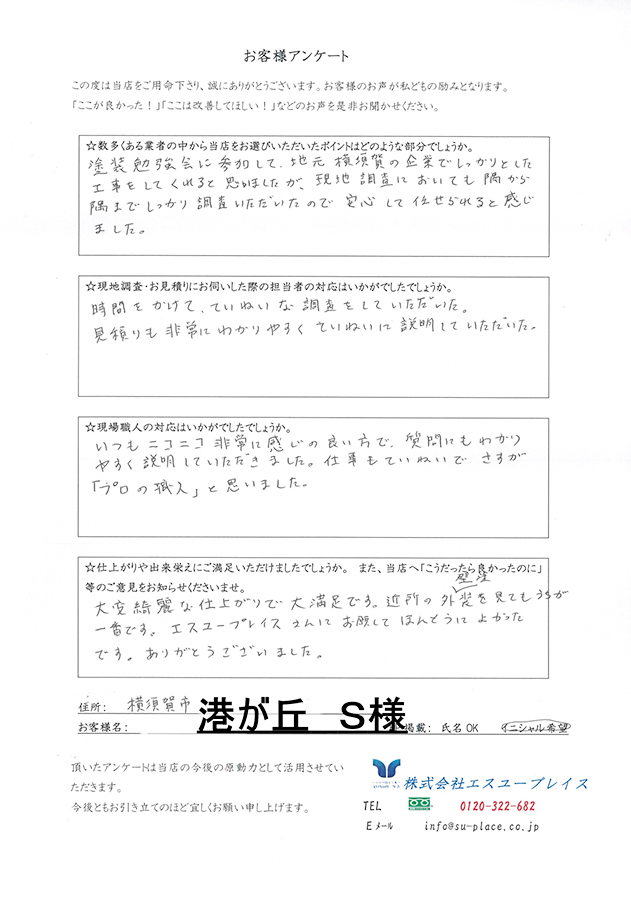 お客様アンケート
この度は当店をご用命下さり、誠にありがとうございます。お客様のお声が私どもの励みとなります。
「ここが良かった！」「ここは改善してほしい！」などのお声を是非お聞かせください。
☆数多くある業者の中から当店をお選びいただいたポイントはどのような部分でしょうか。
塗装勉強会に参加して、地元横須賀の企業でしっかりとした
工事をしてくれると思いましたが、現地調査においても隅から
隅までしっかり調査いただいたので安心して任せられると感じ
ました。
☆現地調査・お見積りにお伺いした際の担当者の対応はいかがでしたでしょうか。
時間をかけて、ていねいな調査をしていただいた。
見積りも非常にわかりやすくていねいに説明していただいた。
☆現場職人の対応はいかがでしたでしょうか。
いつもニコニコ非常に感じの良い方で、質問にもわかり
やすく説明していただきました。仕事もていねいでさすが
「プロの職人」と思いました。
☆仕上がりや出来栄えにご満足いただけましたでしょうか。 また、当店へ「こうだったら良かったのに」
等のご意見をお知らせくださいませ。
壁塗
大変綺麗な仕上がりで大満足です。近所の外装を見てもうちが
一番です。エスユープレイスさんにお願してほんとうによかった
です。ありがとうございました。
住所: 横須賀市
港が丘 S様
お客様名: 掲載: 氏名OK イニシャル希望
頂いたアンケートは当店の今後の原動力として活用させてい
ただきます。
今後ともお引き立てのほど宜しくお願い申し上げます。
株式会社エスユープレイス
TEL 0120-322-682
Eメール info@su-place.co.jp